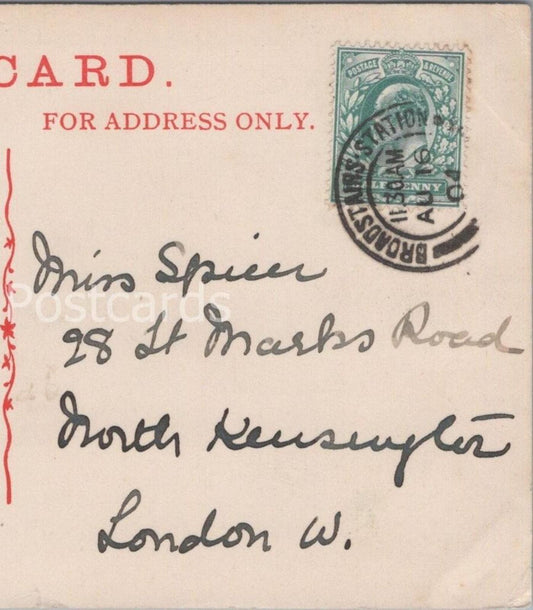 CARD.
FOR ADDRESS ONLY.
POSTAGE & REVENUE
HALFPENNY
BROADSTAIRS STATION
11 30 AM
AU 16
04
Miss Spicer
98 St Marks Road
North Kensington
London W.
Postcards